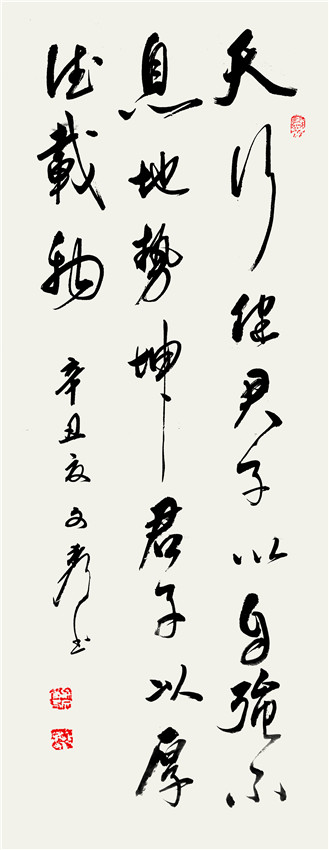 天行健君子以自强不
息地势坤君子以厚
德载物
辛丑夏文寿书